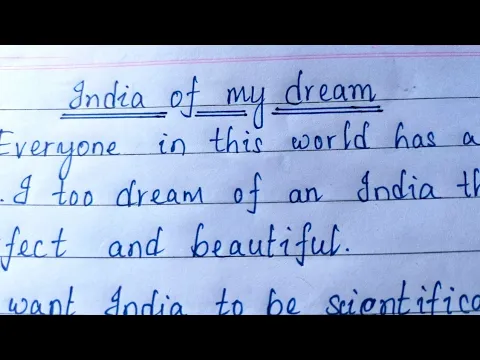 India of my dream
Everyone in this world has a
. I too dream of an India th
fect and beautiful.
want India to be scientifica